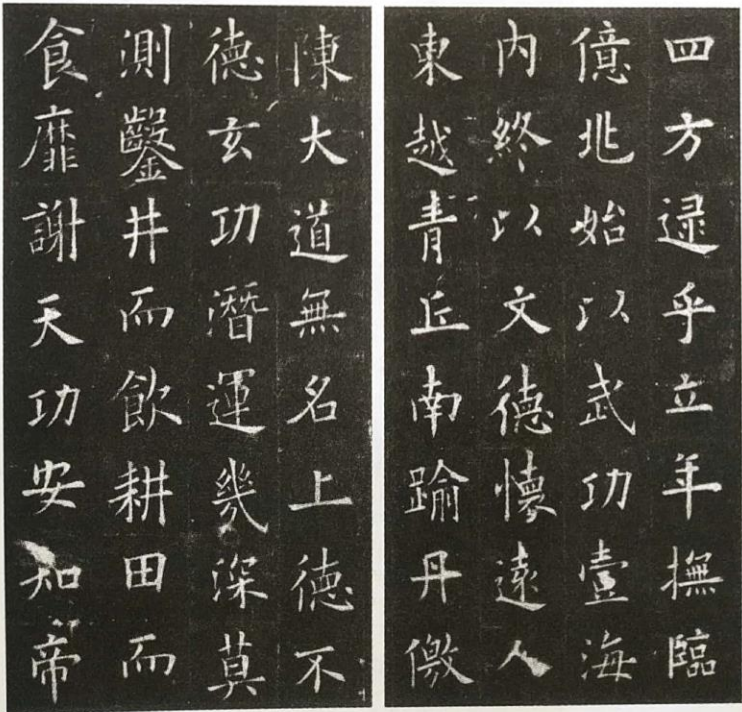 四方逯乎立年撫臨
億兆始以武功壹海
内終以文德懷遠人
東越青丘南踰丹儌
陳大道無名上德不
德玄功潛運幾深莫
測鑿井而飲耕田而
食靡謝天功安知帝